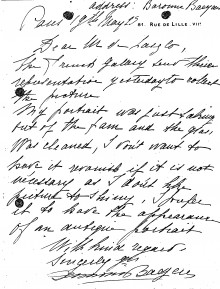 address: Baronne Baeyens
Paris 19th May 25 51, RUE DE LILLE. VII
Dear M de Laszlo,
The French Gallery sent their
representative yesterday to collect
the picture
My portrait was just taking
out of the fram and the glas
Was cleaned, I don't want to
have it varnish if it is not
necessary as I don't like
picture to shiny, I prefer
it to have the appearance
of an antique portrait
With kind regards
Sincerely yrs
Baeyens